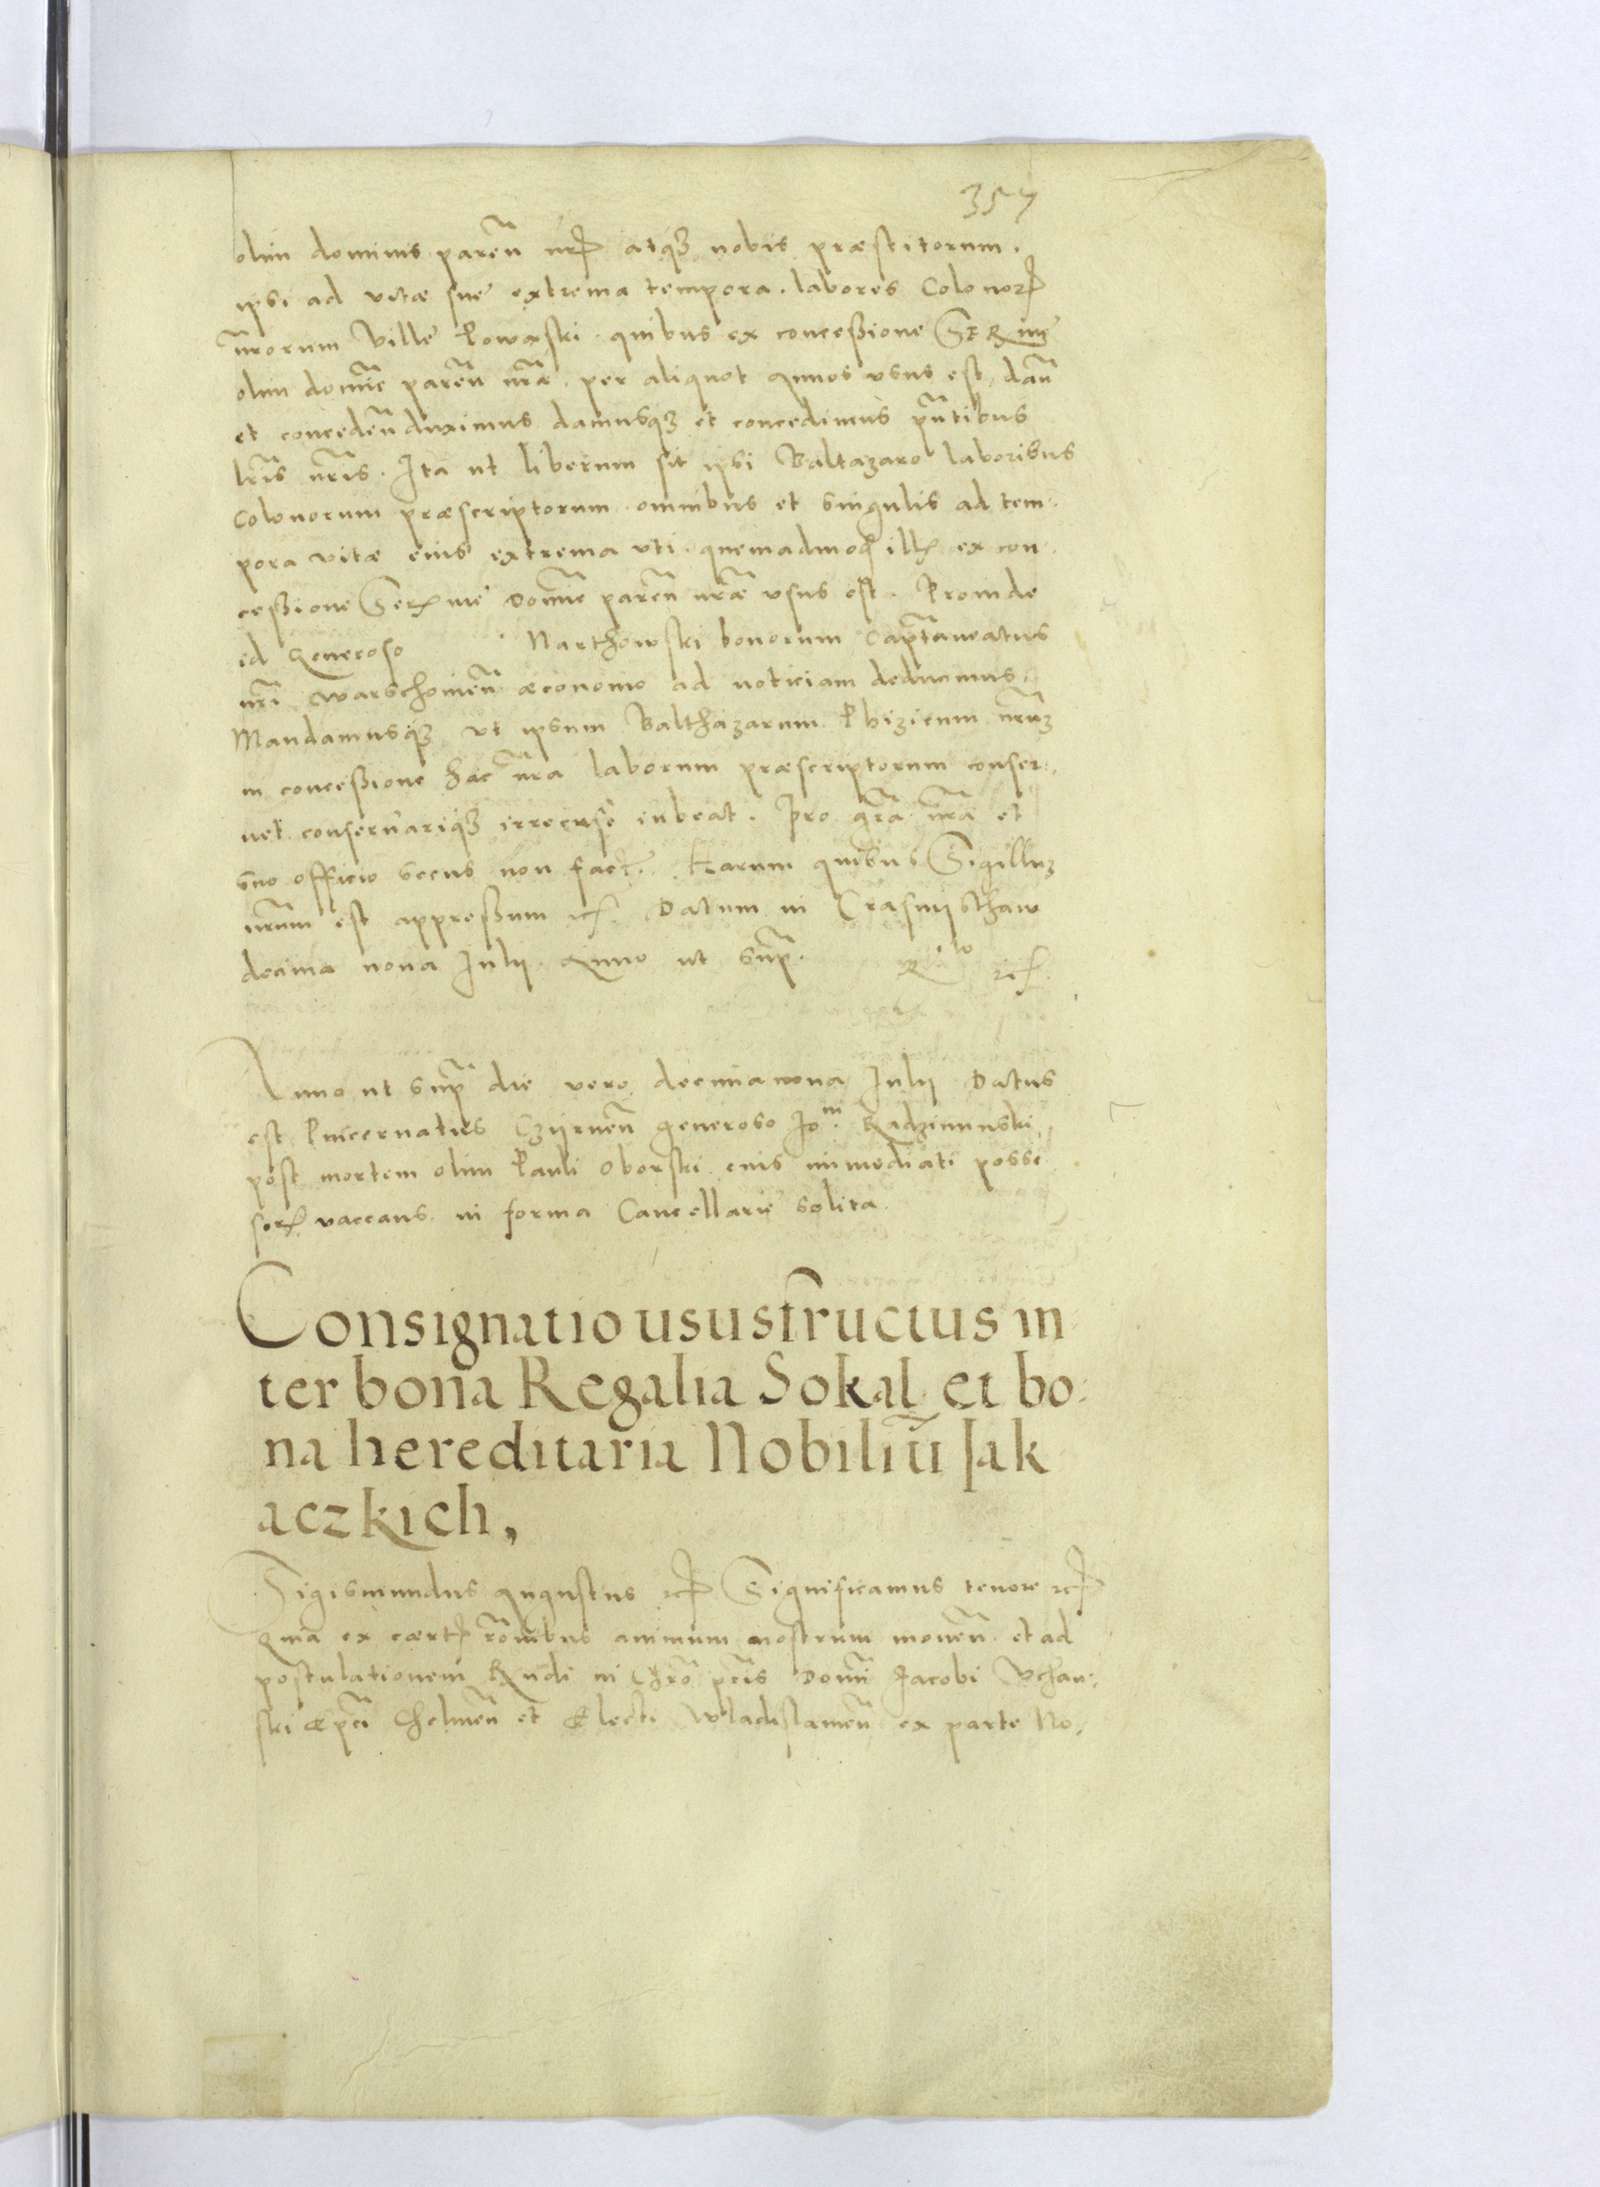 357
olim dominis paren̄ nr̄ꝝ atqꝫ nobis præstitorum.
ipsi ad vitæ suę extrema tempora. labores Colonoꝝ
nr̄orum Villę Powąski. quibus ex conceßione Sermę
olim domīe paren̄ nr̄æ. per aliquot annos usus est, dan̄
et conceden̄ duximus damusqꝫ et concedimus pn̄tibus
lr̄is nr̄is. Ita ut liberum sit ipsi Baltazaro laboribus
Colonorum præscriptorum omnibus et singulis ad tem-
pora vitæ eius extrema uti. quemadmoḋ illꝭ ex con-
ceßione Serꝭmę Domīe paren̄ nr̄æ usus est. Proinde
id Generoso Narthowski bonorum Capt̄aneatus
nr̄i Warschowien̄ œconomo ad noticiam deducimus,
Mandamusqꝫ ut ipsum Balthazarum Phizicum nr̄uꝫ
in conceßione hac nr̄a laborum præscriptorum conser-
uet conseruariqꝫ irrecuse iubeat. Pro gr̄a nr̄a et
suo officio secus non fact̄. Harum quibus Sigilluꝫ
nr̄um est appreßum ꝛcꝭ. Datum in Crasnysthaw
decima nona Iulij. Anno ut supr̄.
Rīlo ꝛcꝭ.
Anno ut supr̄ die vero decima nona Iulij Datus
est Pincernatus Czijrnen̄ generoso Io.ni Radziminski,
post mortem olim Pauli Oborski eius immediati posse
sorꝭ vaccans. in forma Cancellarię solita.
Consignatio ususfructus in-
ter bona Regalia Sokal et bo-
na hereditaria Nobiliū Jak
aczkich,
Sigismundus Augustus ꝛcꝭ Significamus tenore ꝛcꝭ
Quia ex cærtꝭ rōnibus animum nostrum mouen̄. et ad
postulationem Rndi in Chrō pr̄is Domī Jacobi Uchan-
ski Epī Chelmen̄ et Electi Wladislauien̄ ex parte No-